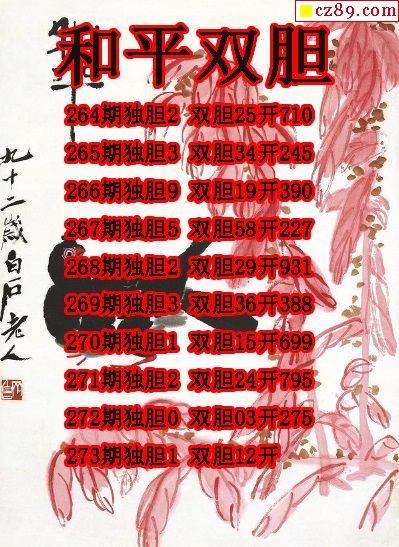 cz89.com
和平双胆
264期独胆2 双胆25开710
265期独胆3 双胆34开245
266期独胆9 双胆19开390
267期独胆5 双胆58开227
268期独胆2 双胆29开931
269期独胆3 双胆36开388
270期独胆1 双胆15开699
271期独胆2 双胆24开795
272期独胆0 双胆03开275
273期独胆1 双胆12开
九十二岁白石老人